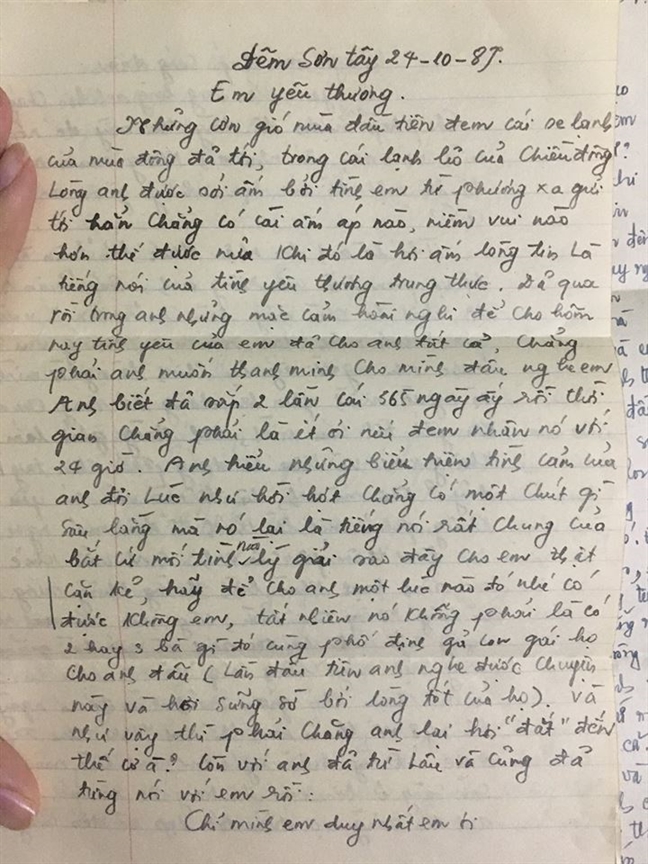 Đêm Sơn tây 24-10-85.
Em yêu thương.
Những cơn gió mùa đầu tiên đem cái se lạnh
của mùa đông đã tới, trong cái lạnh lẽo của Chiều đông
Lòng anh được sởi ấm bởi tình em từ phương xa gửi
tới hẳn Chẳng có cái ấm áp nào, niềm vui nào
hơn thế được nữa Khi đó là hơi ấm lòng tin Là
tiếng nói của tình yêu thương trung thực. Đã qua
rồi trong anh những mặc cảm hoài nghi để Cho hôm
nay tình yêu của em đã cho anh tất cả, Chẳng
phải anh muốn thanh minh Cho mình đâu nghe em
Anh biết đã sắp 2 lần cái 365 ngày ấy rồi thời
gian Chẳng phải là ít ỏi nếu đem nhân nó với
24 giờ. Anh hiểu những biểu hiện tình cảm của
anh đôi Lúc như hời hợt Chẳng có một Chút gì
sâu lắng mà nó lại là tiếng nói rất Chung của
bất cứ mối tình nào lý giải sao đây Cho em thật
cặn kẽ, hãy để Cho anh một lúc nào đó nhé có
được Không em, tất nhiên nó Không phải là có
2 hay 3 bà gì đó cùng phố định gả con gái họ
Cho anh đâu (Lần đầu tiên anh nghe được Chuyện
này và hơi sững sờ bởi lòng tốt của họ). Và
như vậy thì phải Chăng anh lại hơi "đắt" đến
thế cơ à? Còn với anh đã từ Lâu và cũng đã
từng nói với em rồi:
Chỉ mình em duy nhất em ơi